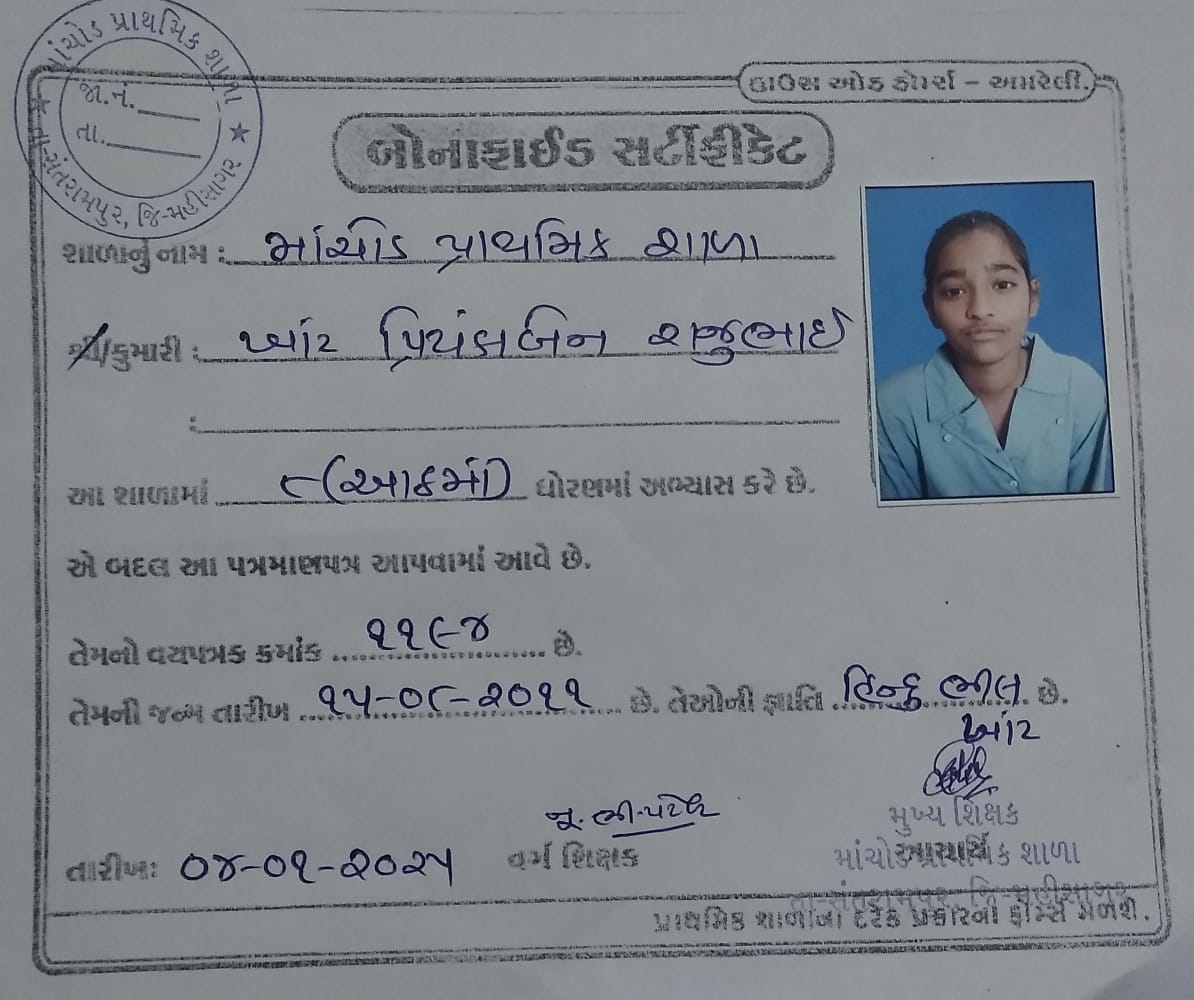 માંચોડ પ્રાથમિક શાળા
જા.નં.
તા.
★ તા-સંતરામપુર, જિ-મહીસાગર ★
હાઉસ ઓફ ફોર્મ્સ - અમરેલી.
બોનાફાઈડ સર્ટીફીકેટ
શાળાનું નામ : માંચોડ પ્રાથમિક શાળા
શ્રી/કુમારી : ખાંટ પ્રિયંકાબેન રાજુભાઈ
:
આ શાળામાં ૮ (આઠમાં) ધોરણમાં અભ્યાસ કરે છે.
એ બદલ આ પત્રમાણપત્ર આપવામાં આવે છે.
તેમનો વયપત્રક ક્રમાંક ૧૧૯૪ છે.
તેમની જન્મ તારીખ ૧૫-૦૮-૨૦૧૧ છે. તેઓની જ્ઞાતિ હિન્દુ ભીલ છે.
ખાંટ
તારીખ: ૦૪-૦૧-૨૦૨૫ વર્ગ શિક્ષક આચાર્ય
મુખ્ય શિક્ષક
માંચોડ પ્રાથમિક શાળા
તા-સંતરામપુર, જિ-મહીસાગર
પ્રાથમિક શાળાના દરેક પ્રકારના ફોર્મ્સ મળશે.